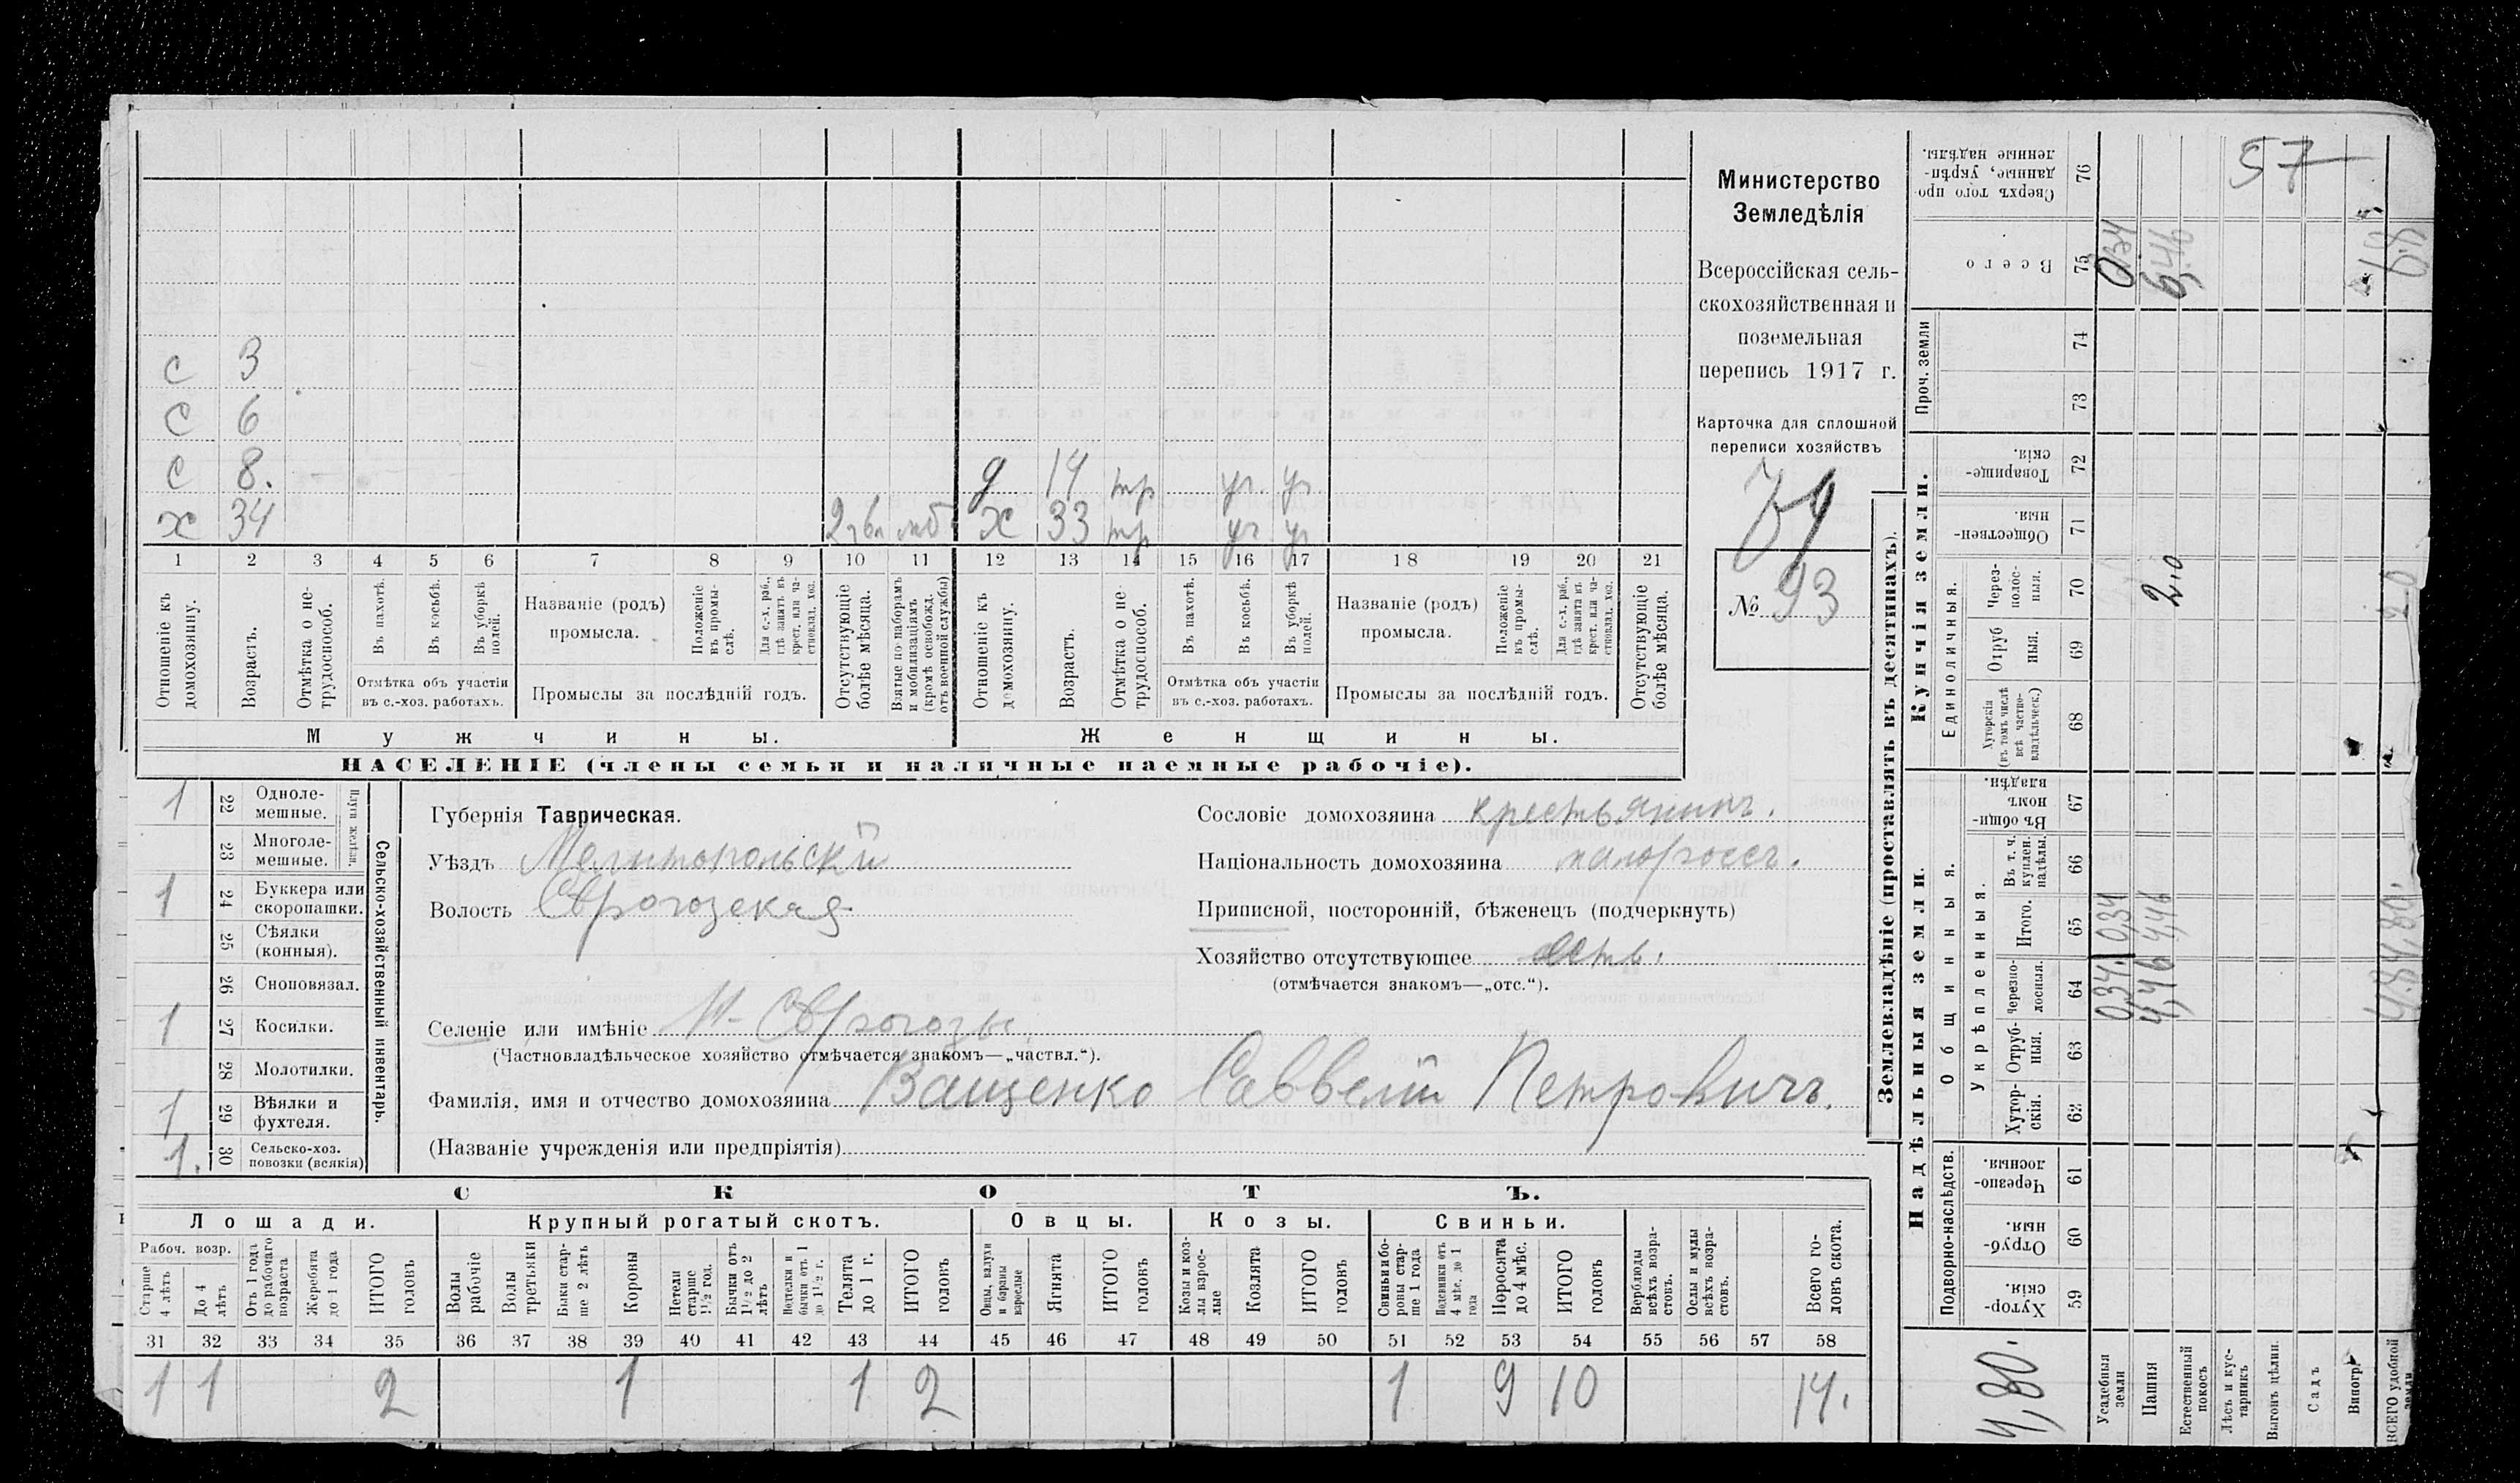 с 3
с 6
с 8. д 14 тр уч. уч
х 34 моб х 33 тр уч. уч
1 2 3 4 5 6 7 8 9 10 11 12 13 14 15 16 17 18 19 20 21
Отношеніе къ домохозяину.
Возрастъ.
Отмѣтка о не-
трудоспособ.
Въ пахотѣ.
Въ косьбѣ.
Въ уборкѣ
полей.
Отмѣтка объ участіи
въ с.-хоз. работахъ.
Названіе (родъ)
промысла.
Положеніе
въ промы-
слѣ.
Для с.-х. раб.,
гдѣ занятъ въ
крест. или ча-
стновлад. хоз.
Промыслы за послѣдній годъ.
Отсутствующіе
болѣе мѣсяца.
Взятые по наборамъ
и мобилизаціямъ
(кромѣ освобожд.
отъ военной службы)
Отношеніе къ
домохозяину.
Возрастъ.
Отмѣтка о не-
трудоспособ.
Въ пахотѣ.
Въ косьбѣ.
Въ уборкѣ
полей.
Отмѣтка объ участіи
въ с.-хоз. работахъ.
Названіе (родъ)
промысла.
Положеніе
въ промы-
слѣ.
Для с.-х. раб.,
гдѣ занята въ
крест. или ча-
стновлад. хоз.
Промыслы за послѣдній годъ.
Отсутствующіе
болѣе мѣсяца.
Мужчины.
Женщины.
НАСЕЛЕНІЕ (члены семьи и наличные наемные рабочіе).
Министерство
Земледѣлія
Всероссійская сель-
скохозяйственная и
поземельная
перепись 1917 г.
Карточка для сплошной
переписи хозяйствъ
№ 93
1 22 Одноле-
мешные.
23 Многоле-
мешные.
Плуги желѣзн.
1 24 Буккера или
скоропашки.
25 Сѣялки
(конныя).
26 Сноповязал.
1 27 Косилки.
28 Молотилки.
1 29 Вѣялки и
фухтеля.
1. 30 Сельско-хоз.
повозки (всякія)
Сельско-хозяйственный инвентарь.
Губернія Таврическая.
Уѣздъ Мелитопольскій
Волость
Селеніе или имѣніе
(Частновладѣльческое хозяйство отмѣчается знакомъ—„частвл.“).
Фамилія, имя и отчество домохозяина Ващенко Савелій Петровичъ.
(Названіе учрежденія или предпріятія)
Сословіе домохозяина крестьянинъ.
Національность домохозяина малороссъ.
Приписной, посторонній, бѣженецъ (подчеркнуть)
Хозяйство отсутствующее
(отмѣчается знакомъ—„отс.“).
СКОТЪ.
Лошади.
Крупный рогатый скотъ.
Овцы.
Козы.
Свиньи.
Рабоч. возр.
Старше
4 лѣтъ
До 4
лѣтъ
Отъ 1 года
до рабочаго
возраста
Жеребята
до 1 года
ИТОГО
головъ
Волы
рабочіе
Волы
третьяки
Быки стар-
ше 2 лѣтъ
Коровы
Нетели
старше
1½ год.
Бычки отъ
1½ до 2
лѣтъ
Подтелки и
бычки отъ 1
до 1½ г.
Телята
до 1 г.
ИТОГО
головъ
Овцы, валухи
и бараны
взрослые
Ягнята
ИТОГО
головъ
Козы и коз-
лы взрос-
лые
Козлята
ИТОГО
головъ
Свиньи и бо-
ровы стар-
ше 1 года
Подсвинки отъ
4 мѣс. до 1
года
Поросята
до 4 мѣс.
ИТОГО
головъ
Верблюды
всѣхъ возра-
стовъ.
Ослы и мулы
всѣхъ возра-
стовъ.
Всего го-
ловъ скота.
31 32 33 34 35 36 37 38 39 40 41 42 43 44 45 46 47 48 49 50 51 52 53 54 55 56 57 58
1 1 2 1 1 2 1 9 10 14.
Землевладѣніе (проставлять въ десятинахъ).
Надѣльныя земли.
Купчія земли.
Проч. земли
Подворно-наслѣдств.
Общинныя.
Укрѣпленныя.
Единоличныя.
Сверхъ того про-
данные, укрѣп-
ленные надѣлы.
76
57
Всего
75 0,34 6,46
74
73
Товарище-
скія.
72
Обществен-
ныя.
71
Через-
полос-
ныя.
70 2,0 2,0
Отруб
ныя.
69
Хуторскія
(въ томъ числѣ
всѣ частно-
владѣльческ.)
68
Въ общи-
номъ
владѣн.
67
Въ т. ч.
куплен.
надѣлы.
66
Итого.
65 0,34 4,46 4,80.
Черезпо-
лосныя.
64 0,34. 4,46
Отруб-
ныя.
63
Хутор-
скія.
62
Черезпо-
лосныя.
61
Отруб-
ныя.
60
Хутор-
скія.
59
4,80.
Усадебныя
земли
Пашня
Естественный
покосъ
Лѣсъ и кус-
тарникъ
Выгонъ цѣлин.
Садъ
Виногр.
ВСЕГО удобной
земли